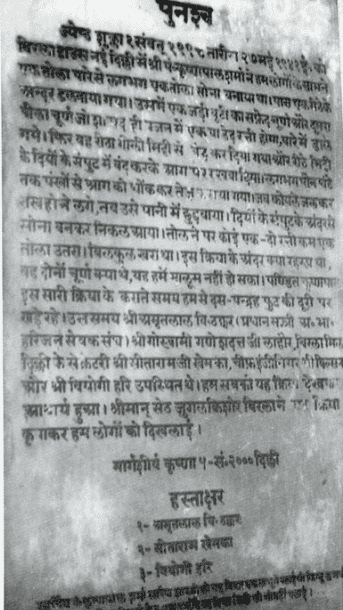 पुनश्च
ज्येष्ठ शुक्ला १ संवत् १९९८ तारीख २७ मई १९४१ ई. को
बिरला हाउस नई दिल्ली में श्री पं. कृष्णपाल शर्मा ने हम लोगों के सामने
एक तोला पारे से लगभग एक तोला सोना बनाया था। पारा एक रीठे के
अन्दर डलवाया गया। उसमें एक जड़ी बूटी का सफ़ेद चूर्ण और दूसरा
पीला चूर्ण जो शायद ही वजन में एक या डेढ़ रत्ती होगा, पारे में डाले
गये। फिर वह रीठा गीली मिट्टी से बंद कर दिया गया और रीठे मिट्टी
के दियों के संपुट में बंद करके आग पर रखवा दिया। लगभग पौन घंटे
तक पंखों से आग को धौंक कर तेज कराया गया। जब कोयले जल कर
राख होने लगे, तब उसे पानी में छुड़वाया। दियों के संपुट के अंदर से
सोना बनकर निकल आया। तोलने पर कोई एक-दो रत्ती कम एक
तोला उतरा। बिलकुल खरा था। इस क्रिया के अंदर क्या रहस्य था,
वह दोनों चूर्ण क्या थे, यह हमें मालूम नहीं हो सका। पण्डित कृष्णपाल
इस सारी क्रिया के कराते समय हमसे दस-पन्द्रह फुट की दूरी पर
खड़े रहे। उस समय श्री अमृतलाल वि. ठक्कर (प्रधान मन्त्री अ. भा.
हरिजन सेवक संघ) श्री गोस्वामी गणेशदत्त जी लाहौर, बिरला मिल
दिल्ली के सेक्रेटरी श्री सीताराम जी खेमका, चीफ़ इंजीनियर श्री विलसन
और श्री वियोगी हरि उपस्थित थे। हम सबको यह क्रिया देखकर
आश्चर्य हुआ। श्रीमान् सेठ जुगलकिशोर बिरला ने यह क्रिया
कराकर हम लोगों को दिखलाई।
मार्गशीर्ष कृष्णा ५ - सं. २००० दिल्ली
हस्ताक्षर
१- अमृतलाल वि. ठक्कर
२- सीताराम खेमका
३- वियोगी हरि